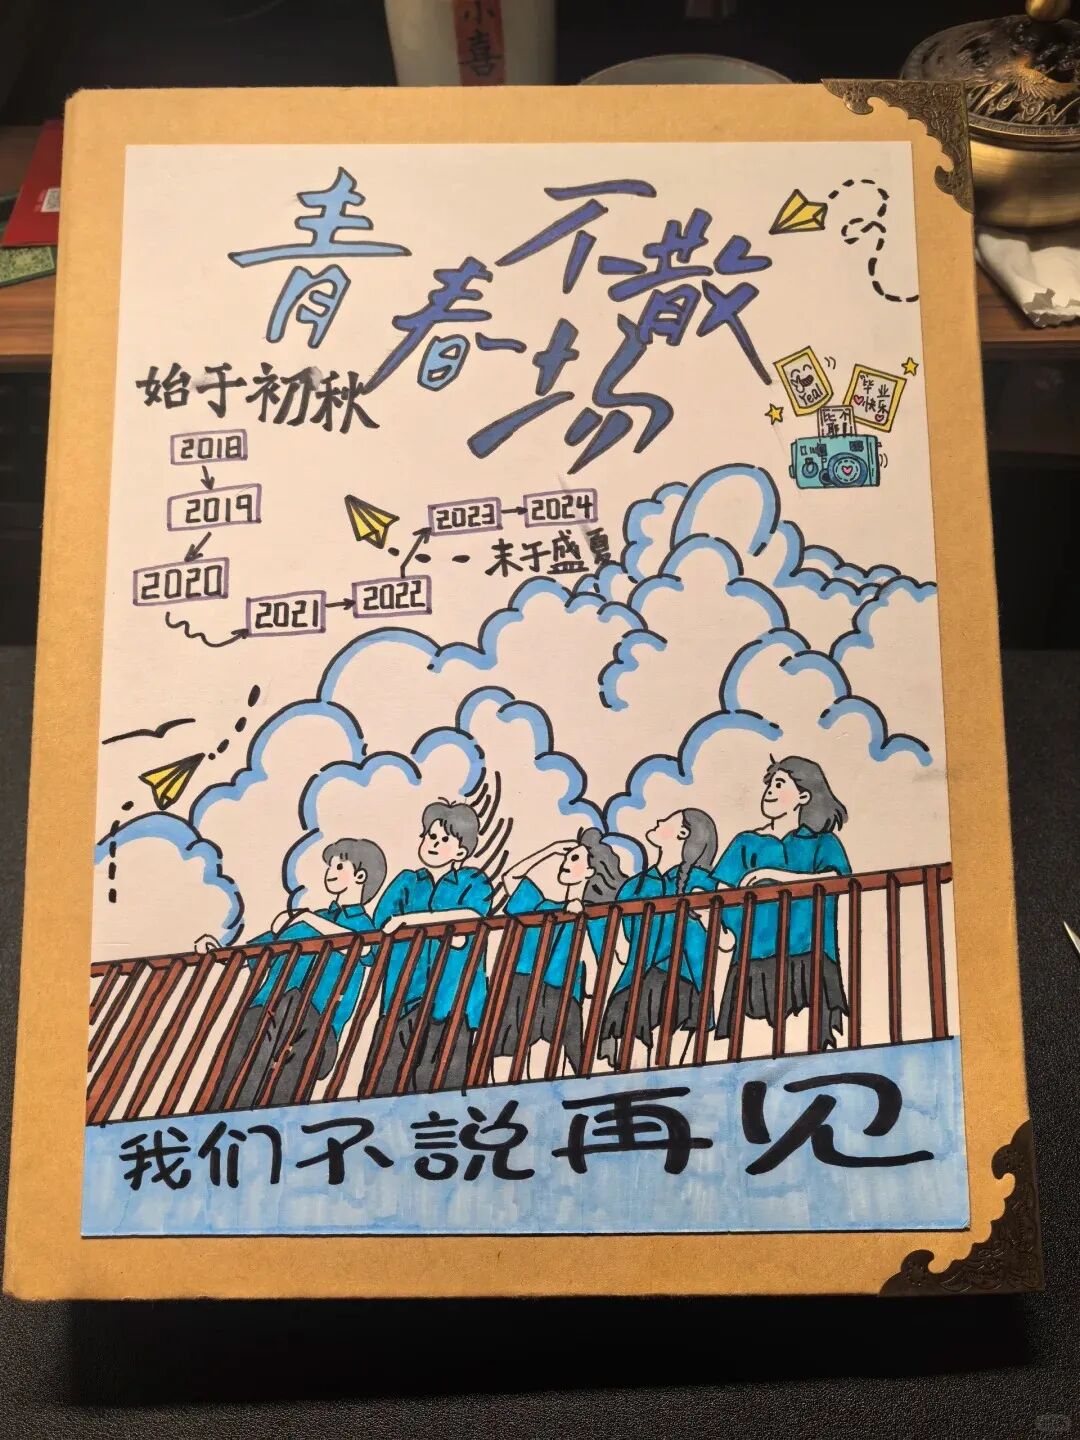 小喜
青春不散场
始于初秋
2018
2019
2020
2021
2022
2023
2024
末于盛夏
Yeal
毕业
快乐
我们不説再见